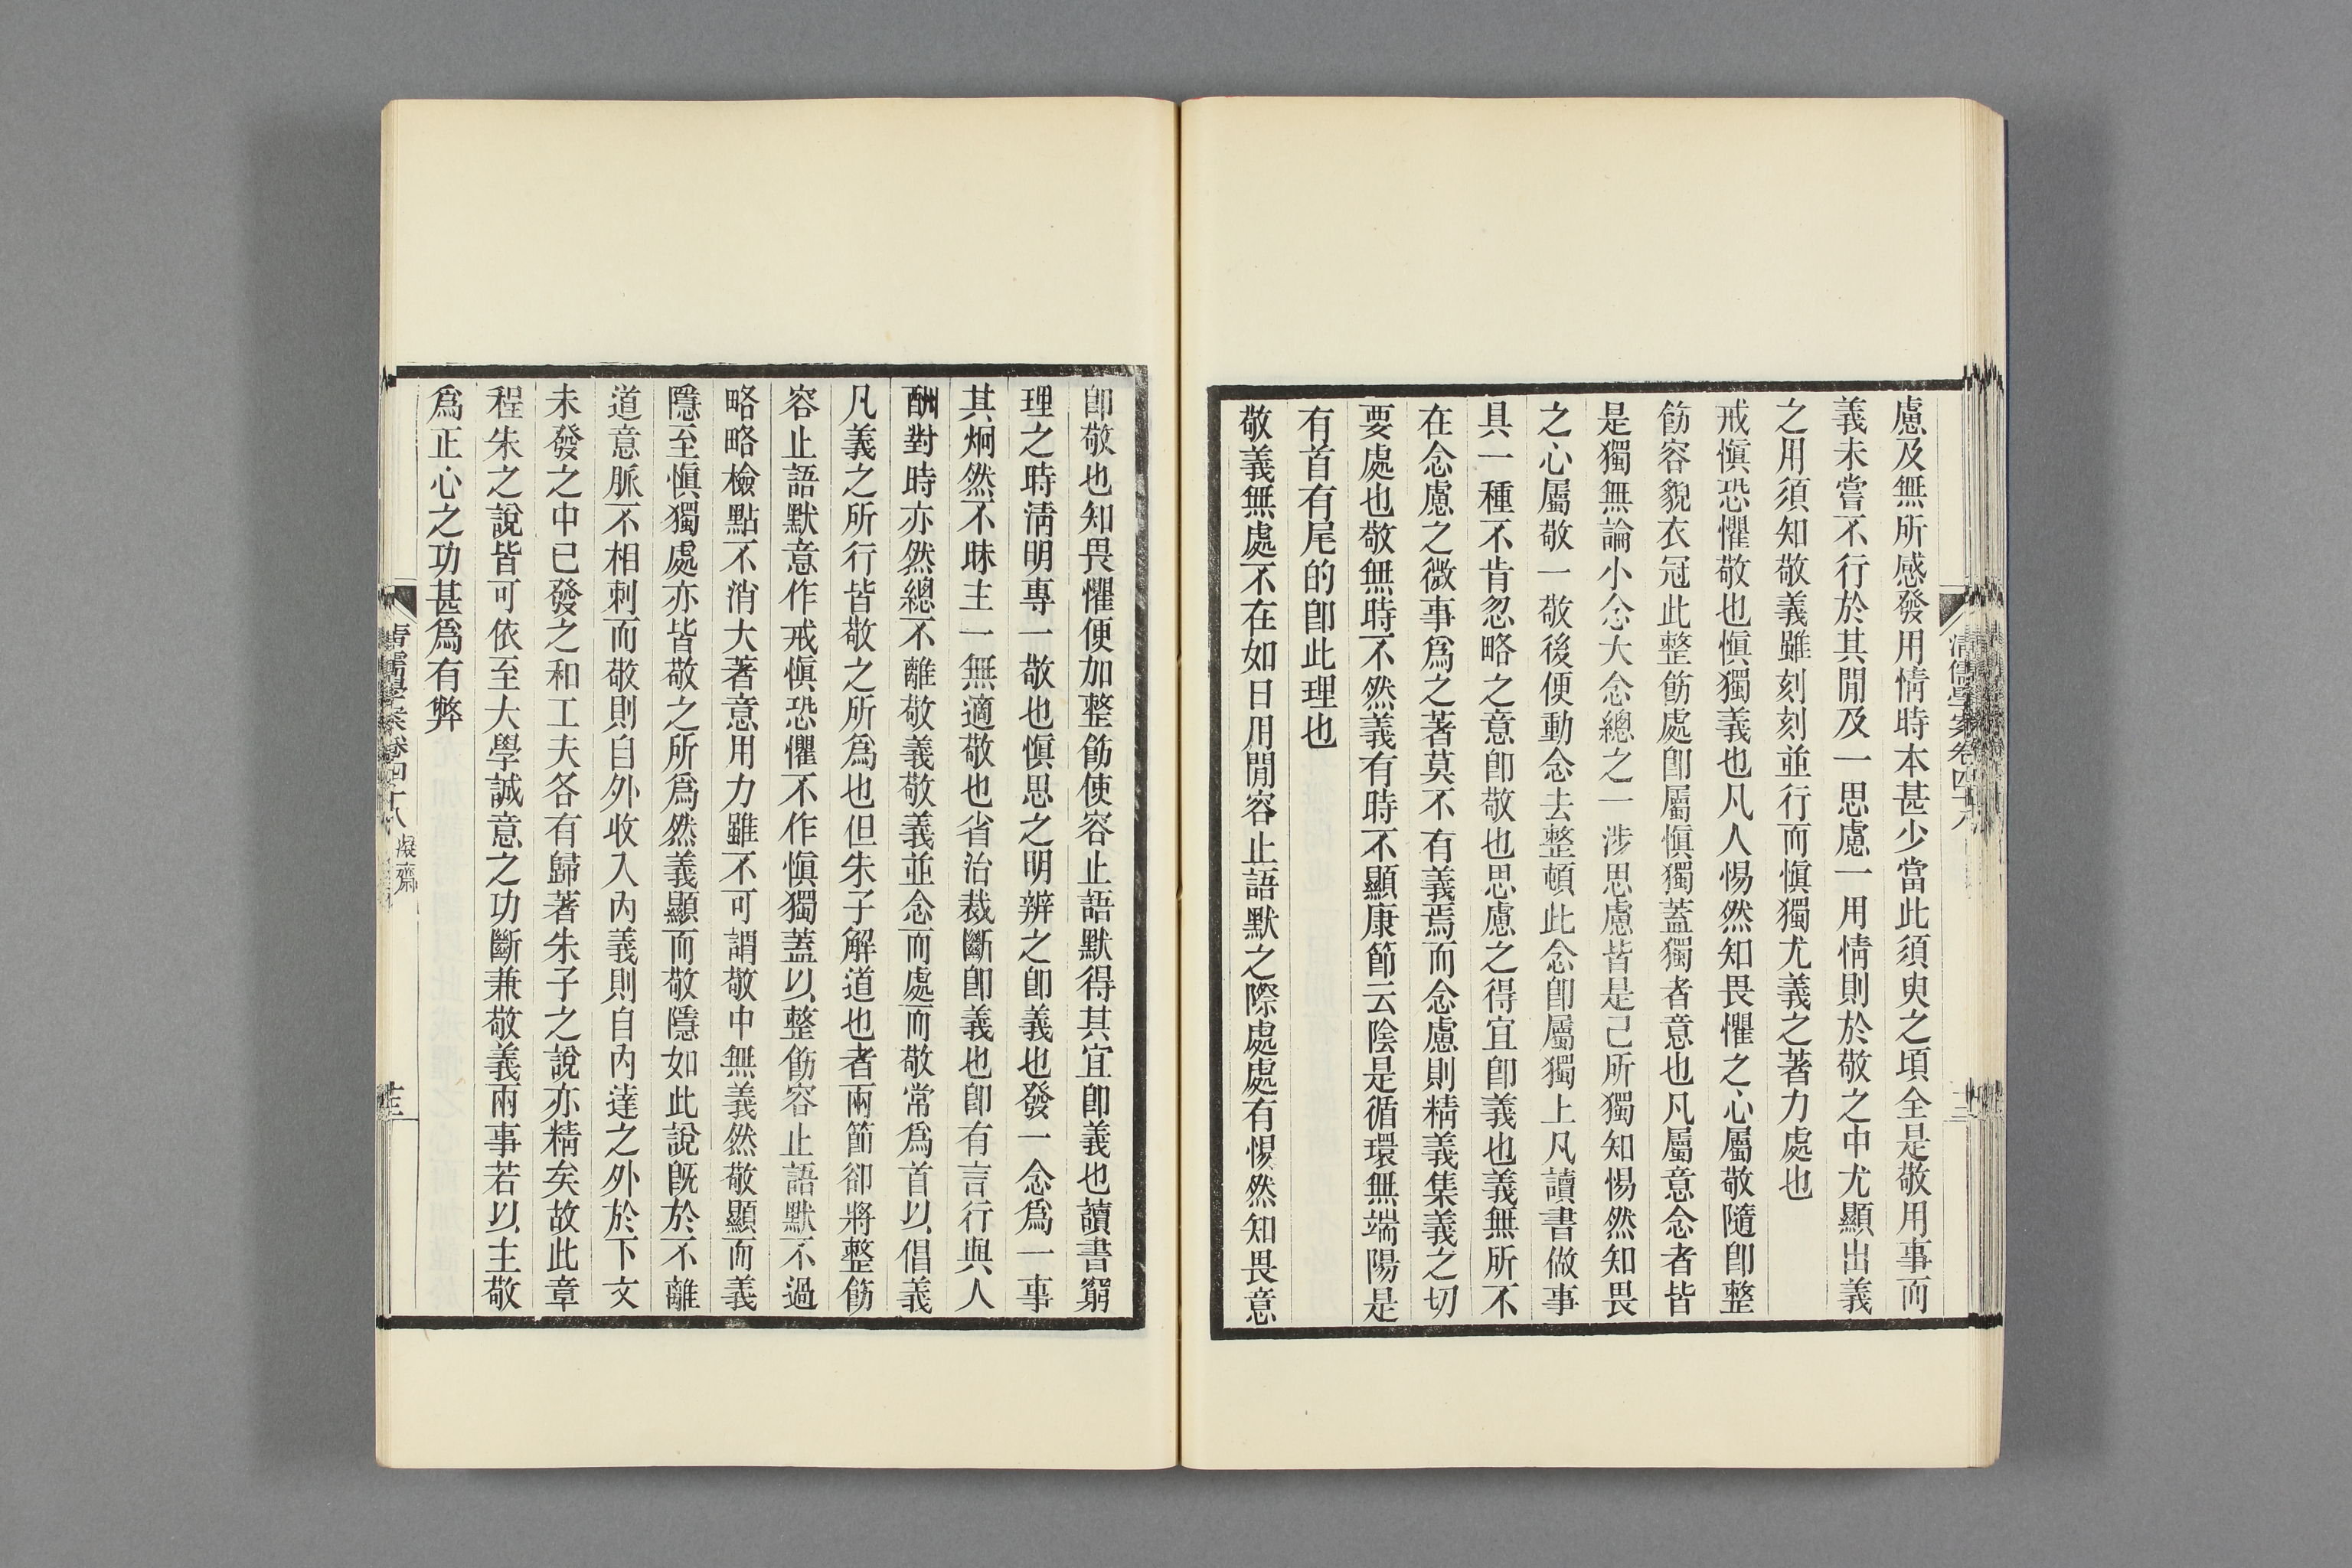 慮及無所感發用情時本甚少當此須臾之頃全是敬用事而
義未嘗不行於其閒及一思慮一用情則於敬之中尤顯出義
之用須知敬義雖刻刻並行而愼獨尤義之著力處也
戒愼恐懼敬也愼獨義也凡人惕然知畏懼之心屬敬隨卽整
飭容貌衣冠此整飭處卽屬愼獨蓋獨者意也凡屬意念者皆
是獨無論小念大念總之一涉思慮皆是己所獨知惕然知畏
之心屬敬一敬後便動念去整頓此念卽屬獨上凡讀書做事
具一種不肯忽略之意卽敬也思慮之得宜卽義也義無所不
在念慮之微事爲之著莫不有義焉而念慮則精義集義之切
要處也敬無時不然義有時不顯康節云陰是循環無端陽是
有首有尾的卽此理也
敬義無處不在如日用閒容止語默之際處處有惕然知畏意
清儒學案卷四十八
卽敬也知畏懼便加整飭使容止語默得其宜卽義也讀書窮
理之時淸明專一敬也愼思之明辨之卽義也發一念爲一事
其炯然不昧主一無適敬也省治裁斷卽義也卽有言行與人
酬對時亦然總不離敬義敬義並念而處而敬常爲首以倡義
凡義之所行皆敬之所爲也但朱子解道也者兩節卻將整飭
容止語默意作戒愼恐懼不作愼獨蓋以整飭容止語默不過
略略檢點不消大著意用力雖不可謂敬中無義然敬顯而義
隱至愼獨處亦皆敬之所爲然義顯而敬隱如此說旣於不離
道意脈不相刺而敬則自外收入內義則自內達之外於下文
未發之中已發之和工夫各有歸著朱子之說亦精矣故此章
程朱之說皆可依至大學誠意之功斷兼敬義兩事若以主敬
爲正心之功甚爲有弊
清儒學案卷四十八 凝齋